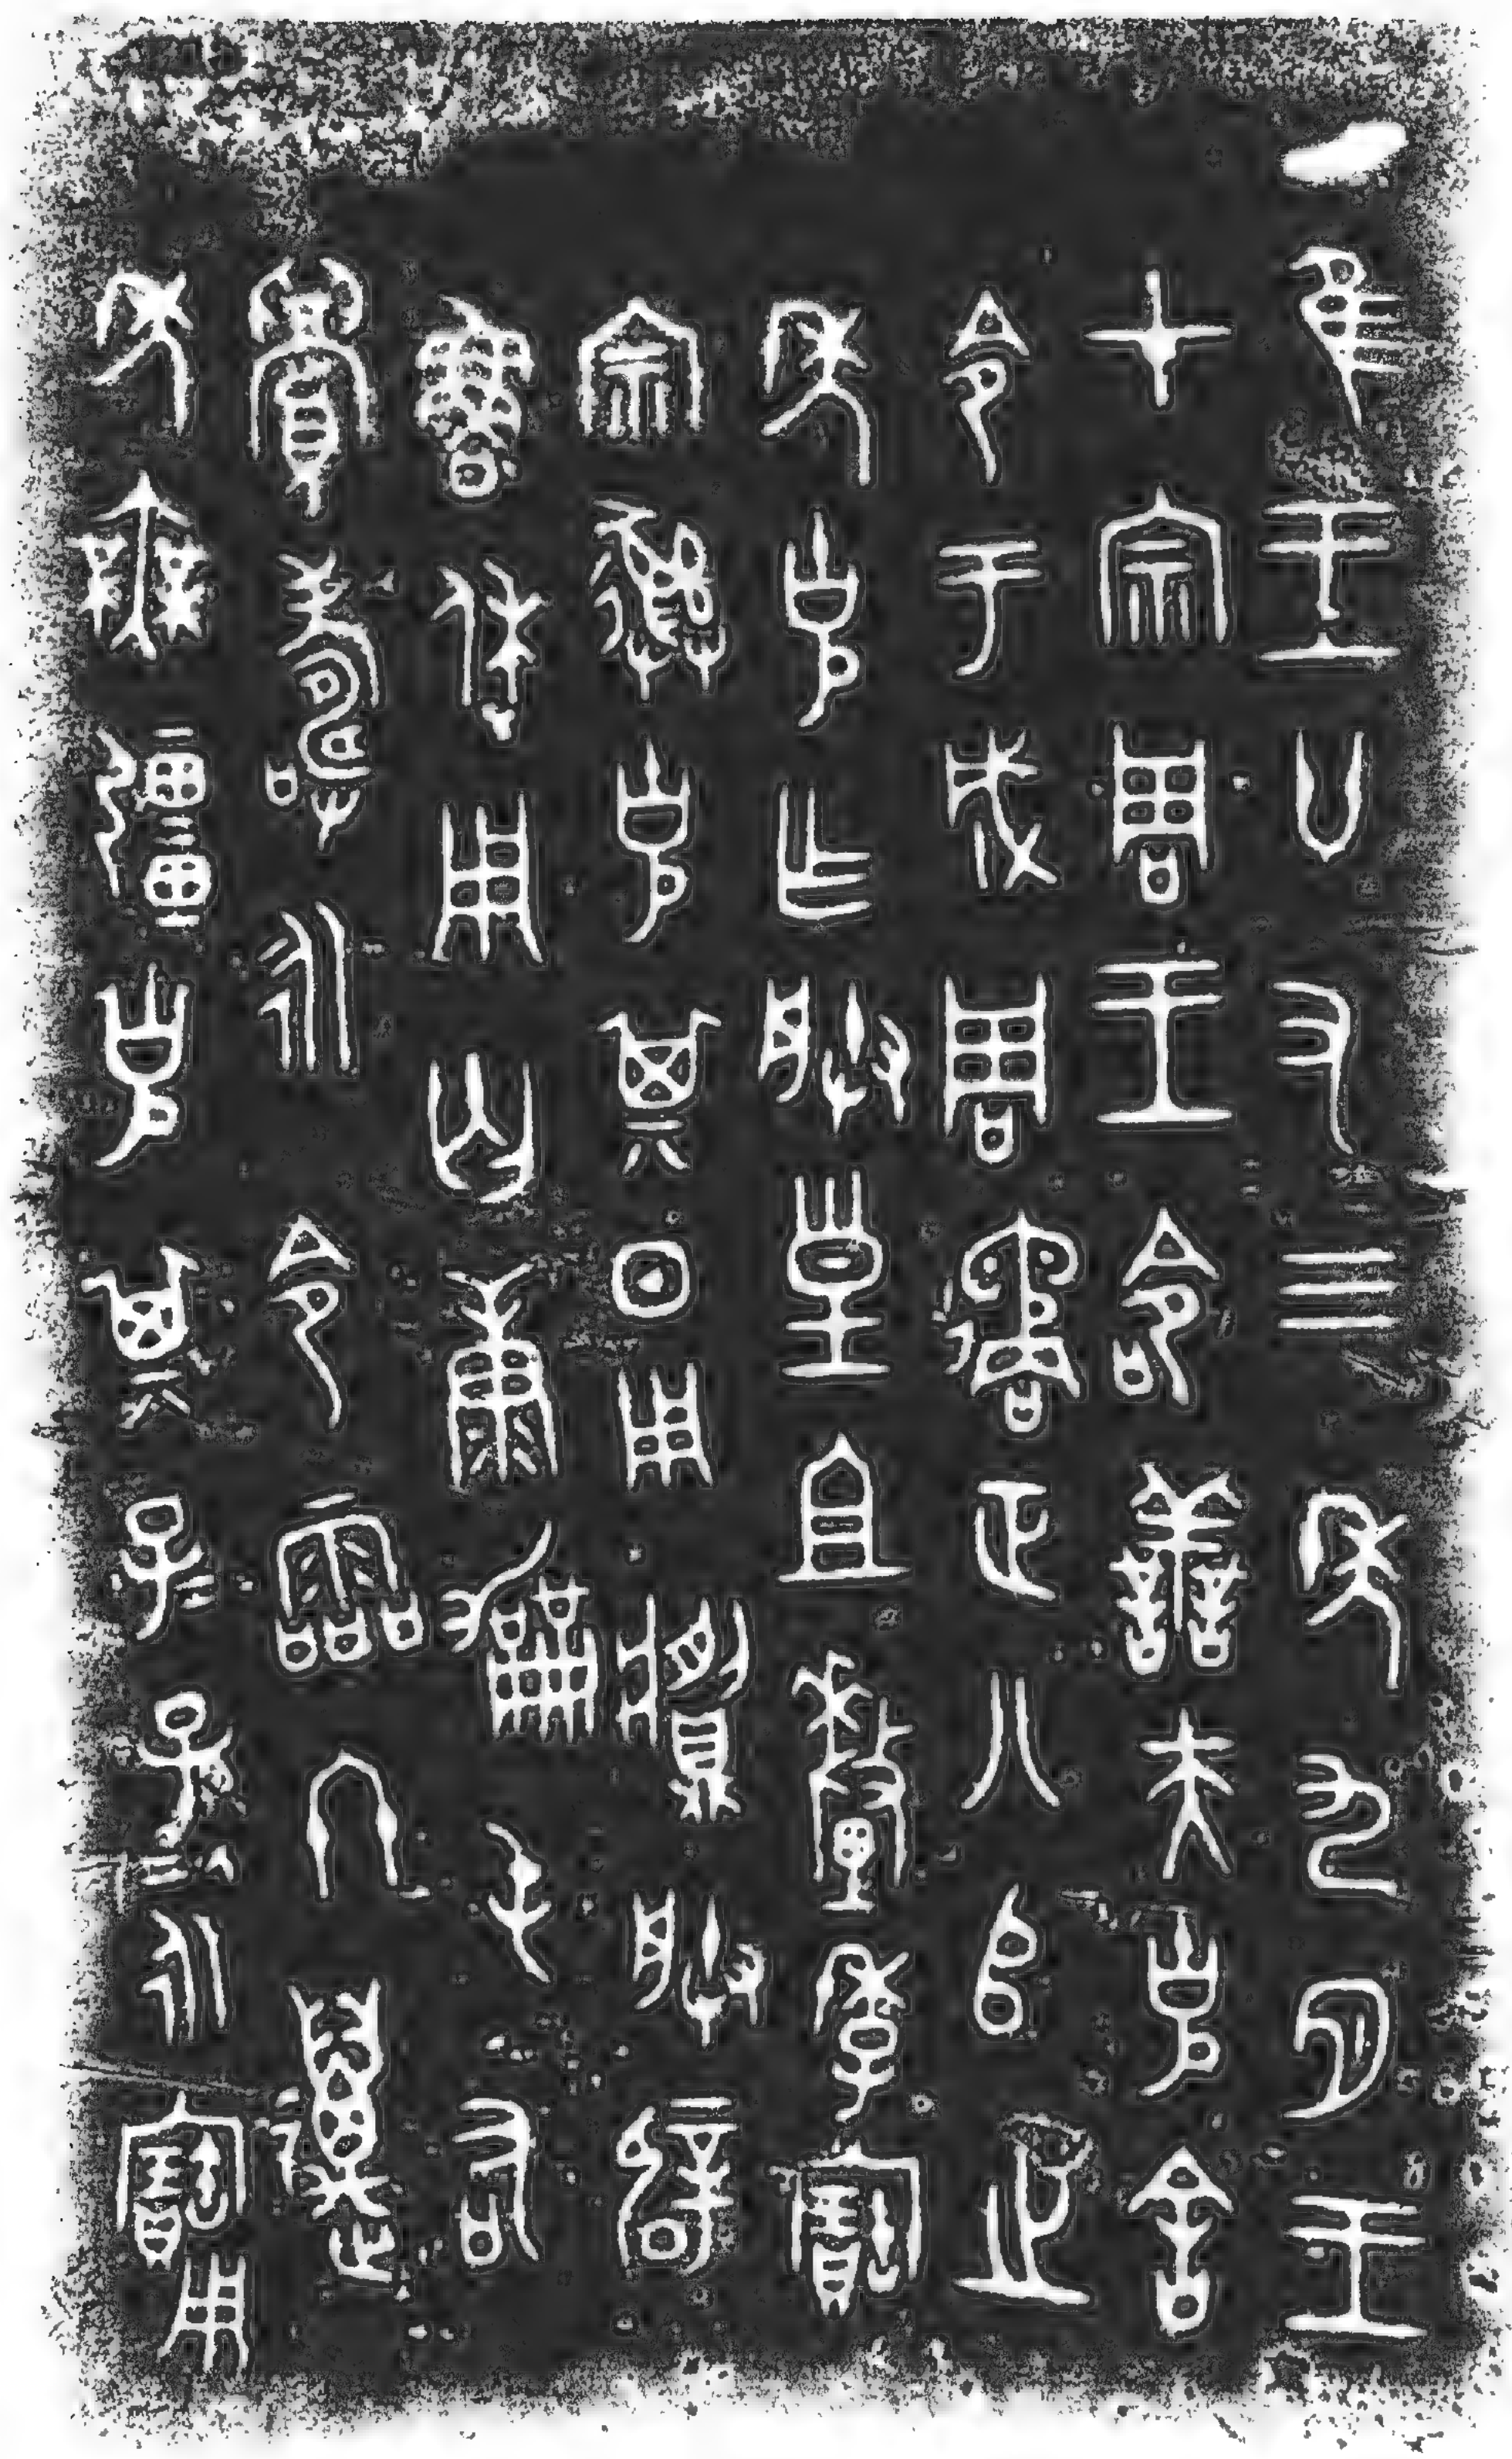 隹王廿又三年九月王
才宗周王命善夫克舍
令于成周遹正八𠂤之
年克乍朕皇且釐季寶
宗彝克其日用䵼朕辟
魯休用匄康勵屯右
眉壽永令霝冬邁
年無疆克其子＝孫＝永寶用